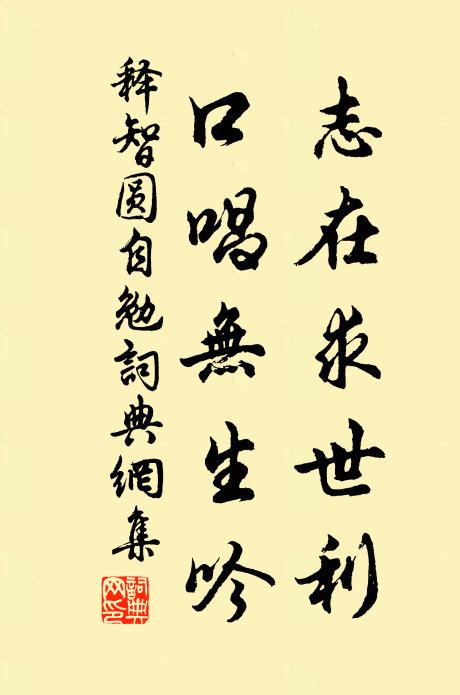 志在求世利
口唱無生吟
释智圆自勉詞典網集
詞典网印